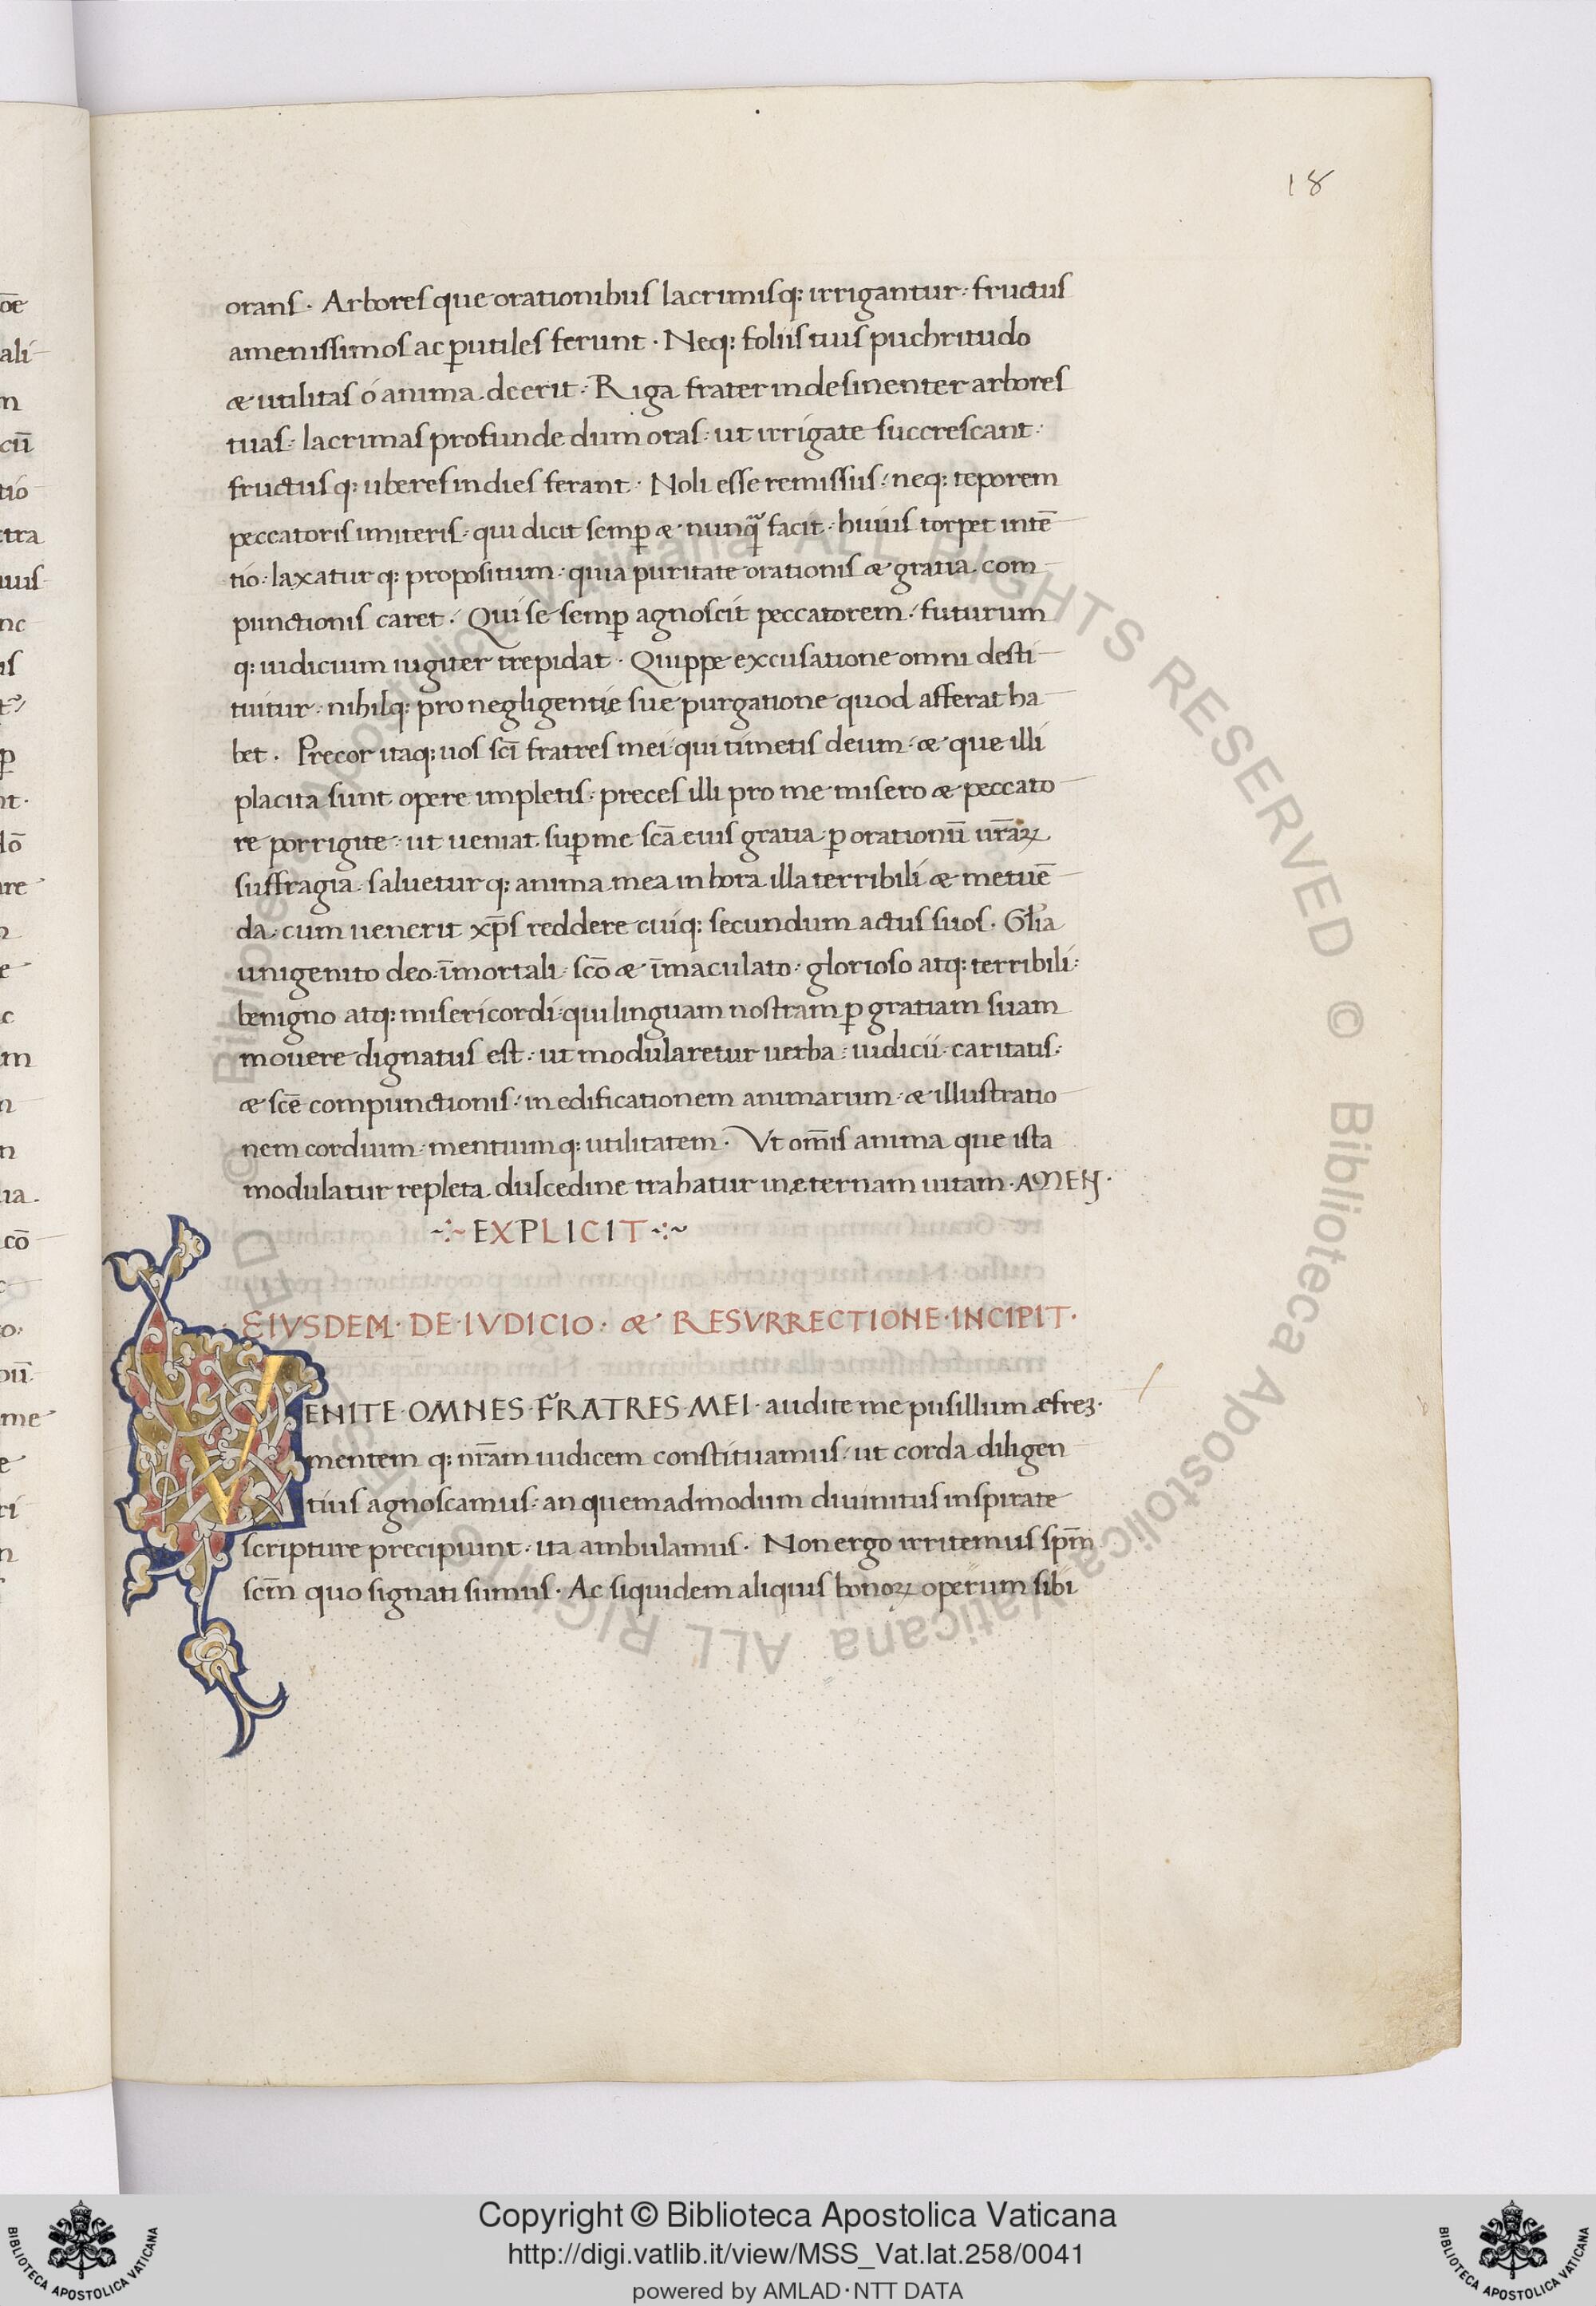 18
orans · Arbores que orationibus lacrimisq: irrigantur · fructus
amenissimos ac ꝑutiles ferunt · Neq: foliis tuis puchritudo
æ utilitas ó anima deerit · Riga frater indesinenter arbores
tuas · lacrimas profunde dum oras · ut irrigate succrescant ·
fructusq: uberes in dies ferant · Noli esse remissus · neq: teporem
peccatoris imiteris · qui dicit semꝑ æ nunq̃ facit · huius torpet intẽ
tio · laxaturq: propositum · quia puritate orationis æ gratia com
punctionis caret · Qui se semꝑ agnoscit peccatorem · futurum
q: iudicium iugiter trepidat · Quippe excusatione omni desti
tuitur · nihilq: pro negligentie sue purgatione quod afferat ha
bet · Precor itaq: uos scĩ fratres mei qui timetis deum · æ que illi
placita sunt opere impletis · preces illi pro me misero æ peccato
re porrigite · ut ueniat suꝑ me scã eius gratia ꝑ orationũ ur̃aꝝ
suffragia · salueturq: anima mea in hora illa terribili æ metuẽ
da · cum uenerit xp̃s reddere cuiq: secundum actus suos · Gl̃ia
unigenito deo · ĩmortali · scõ æ ĩmaculato · glorioso atq: terribili ·
benigno atq: misericordi · qui linguam nostram ꝑ gratiam suam
mouere dignatus est · ut modularetur uerba · iudicii · caritatis ·
æ scẽ compunctionis · in edificationem animarum · æ illustratio
nem cordium · mentiumq: utilitatem · Vt om̃is anima que ista
modulatur repleta dulcedine trahatur in æternam uitam · AMEN ·
~:~ EXPLICIT ~:~
EIVSDEM · DE · IVDICIO · æ RESVRRECTIONE · INCIPIT ·
VENITE · OMNES · FRATRES · MEI · audite me pusillum æfreꝫ ·
mentemq: nr̃am iudicem constituamus · ut corda diligen
tius agnoscamus · an quemadmodum diuinitus inspirate
scripture precipiunt · ita ambulamus · Non ergo irritemus sp̃m
scm̃ quo signati sumus · Ac siquidem aliquis bonoꝝ operum sibi
Copyright © Biblioteca Apostolica Vaticana
http://digi.vatlib.it/view/MSS_Vat.lat.258/0041
powered by AMLAD·NTT DATA